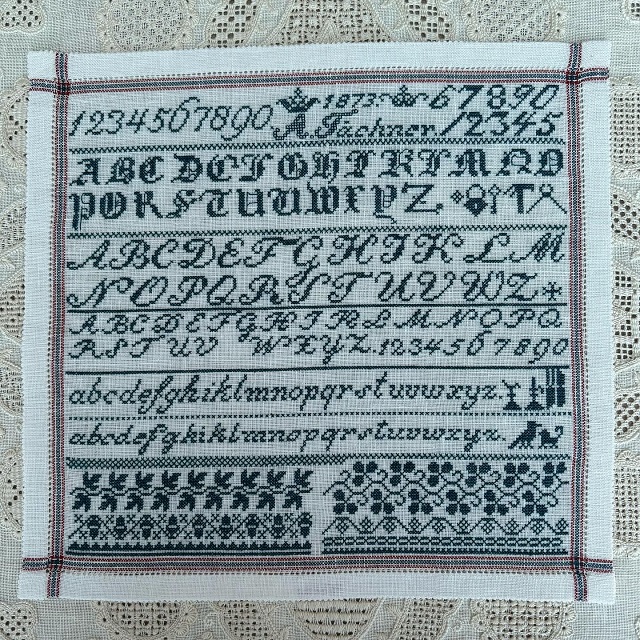 1234567890 1873. 67890
A. Tachner. 12345
ABCDEFGHIKLMNO
PQRSTUVWXYZ
ABCDEFGHIKLM
NOPQRSTUVWZ
ABCDEFGHIKLMNOPQ
RSTUVWXYZ. 1234567890
abcdefghiklmnopqrstuvwxyz.
abcdefghiklmnopqrstuvwxyz.